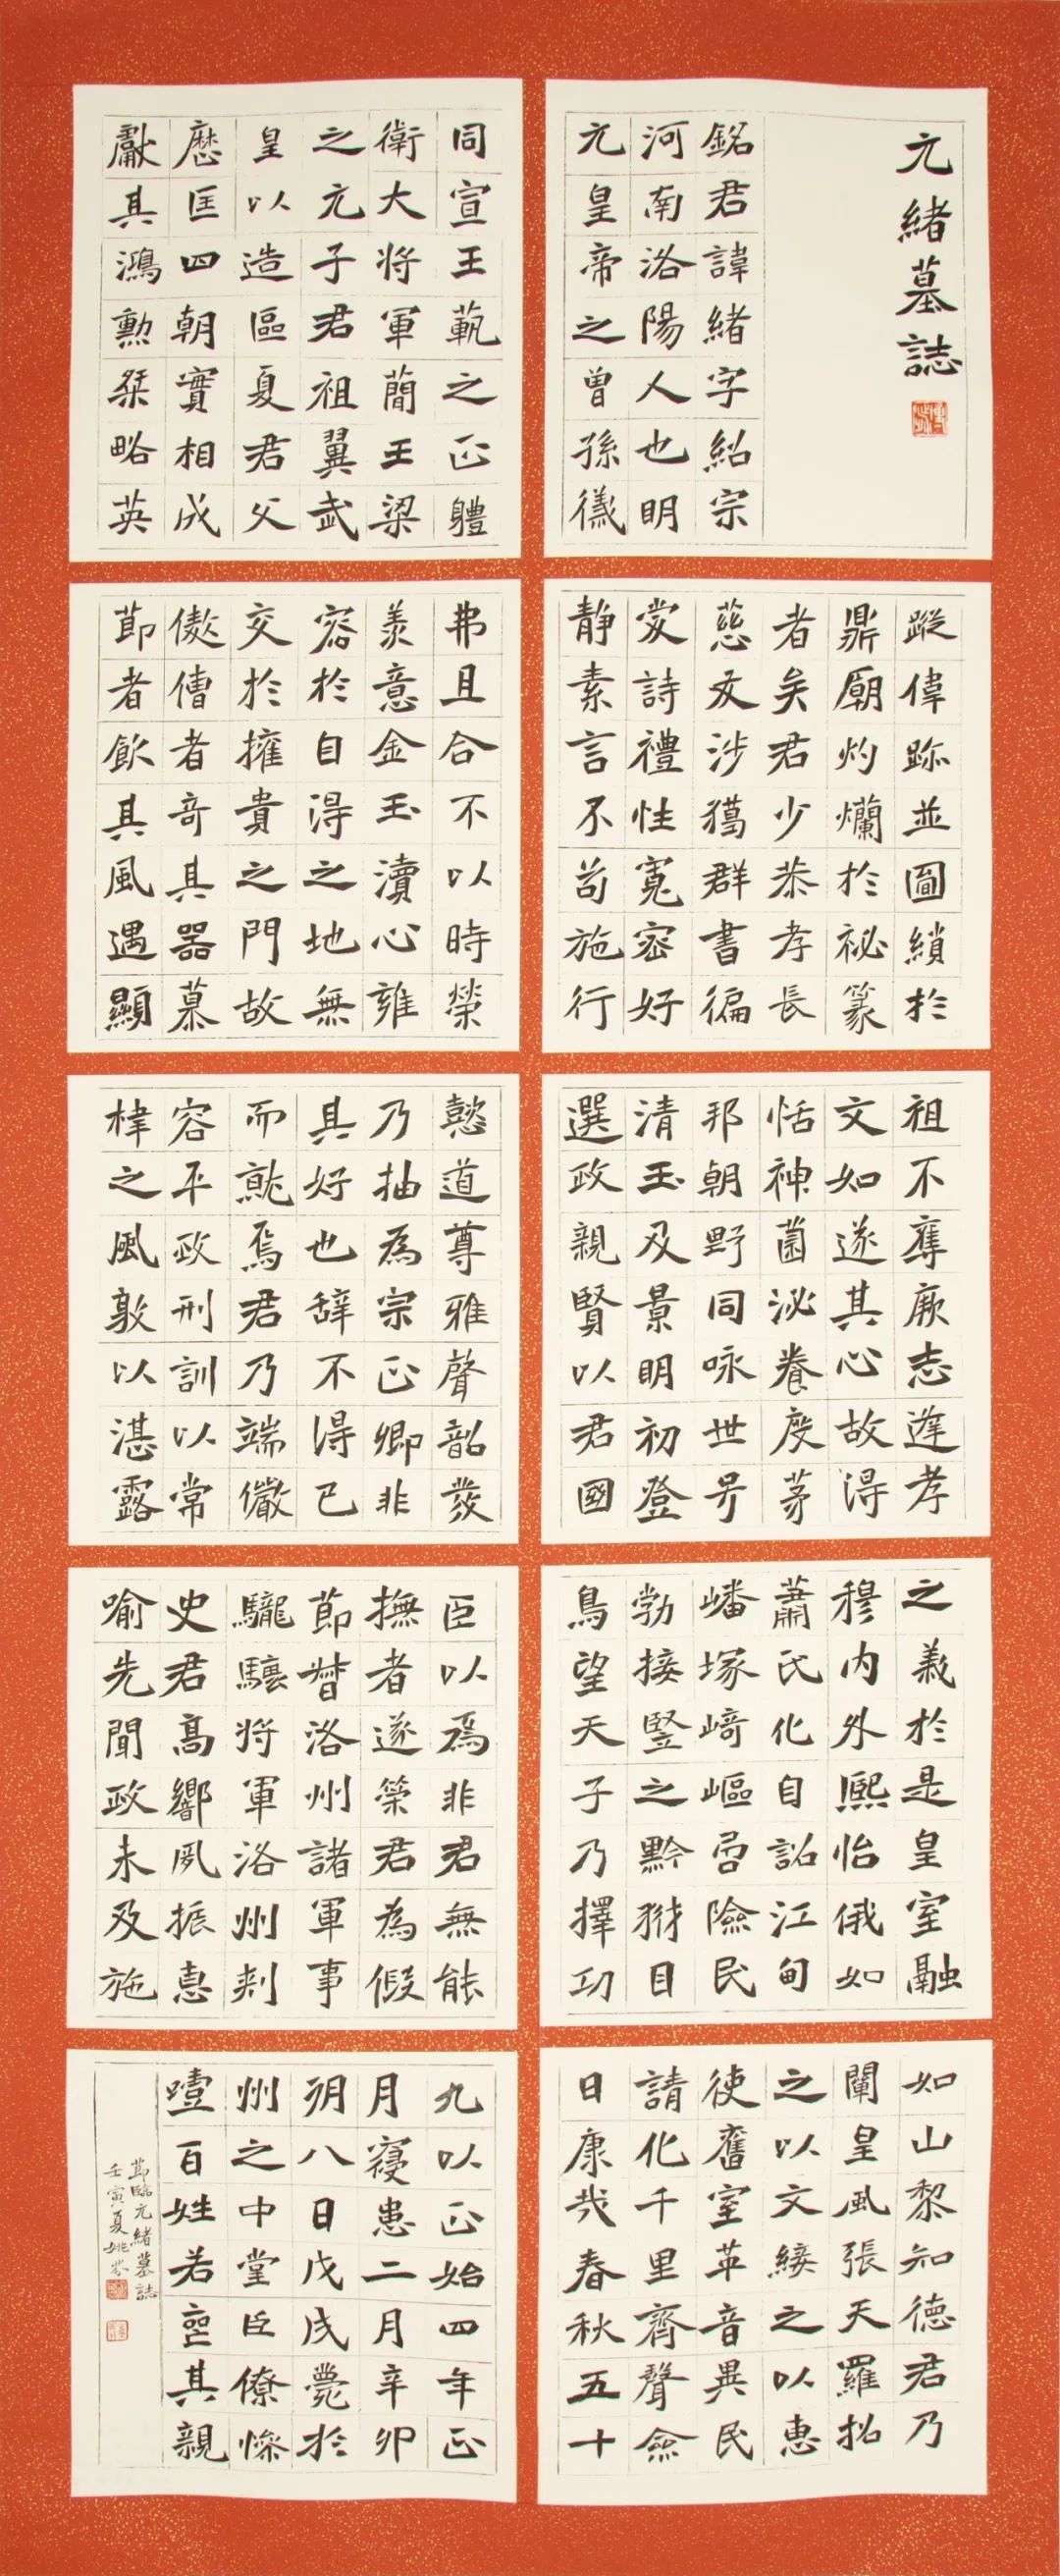 元緒墓誌
銘君諱緒字紹宗
河南洛陽人也明
元皇帝之曾孫儀
同宣王範之正體
衛大將軍簡王梁
之元子君祖翼武
皇以造區夏君父
歷匡四朝實相成
獻其鴻勳桀略英
蹤偉跡並圖績於
鼎廟灼爛於祕篆
者矣君少恭孝長
慈友涉獵群書徧
愛詩禮性寬密好
靜素言不苟施行
弗且合不以時榮
羨意金玉瀆心雍
容於自得之地無
交於擁貴之門故
傲傮者奇其器慕
節者飲其風遇顯
祖不奪厥志逢孝
文如遂其心故得
恬神園泌養度茅
邦朝野同咏世号
清玉及景明初登
選政親賢以君國
懿道尊雅聲韶發
乃抽為宗正卿非
其好也辞不得已
而就焉君乃端儼
容平政刑訓以常
棣之風敦以湛露
之義於是皇室融
穆內外熙怡俄如
蕭氏化自詔江甸
嶓塚﨑嶇岊險民
勃接豎之黔㺃目
鳥望天子乃擇功
臣以為非君無能
撫者遂榮君為假
節督洛州諸軍事
驪驤將軍洛州刺
史君高響夙振惠
喻先聞政未及施
如山黎知德君乃
闡皇風張天羅招
之以文綏之以惠
使舊室革音異民
請化千里齊聲僉
日康哉春秋五十
九以正始四年正
月寢患二月辛卯
朔八日戊戌薨於
州之中堂臣僚慘
噎百姓若喪其親
節臨元緒墓誌
壬寅夏姚